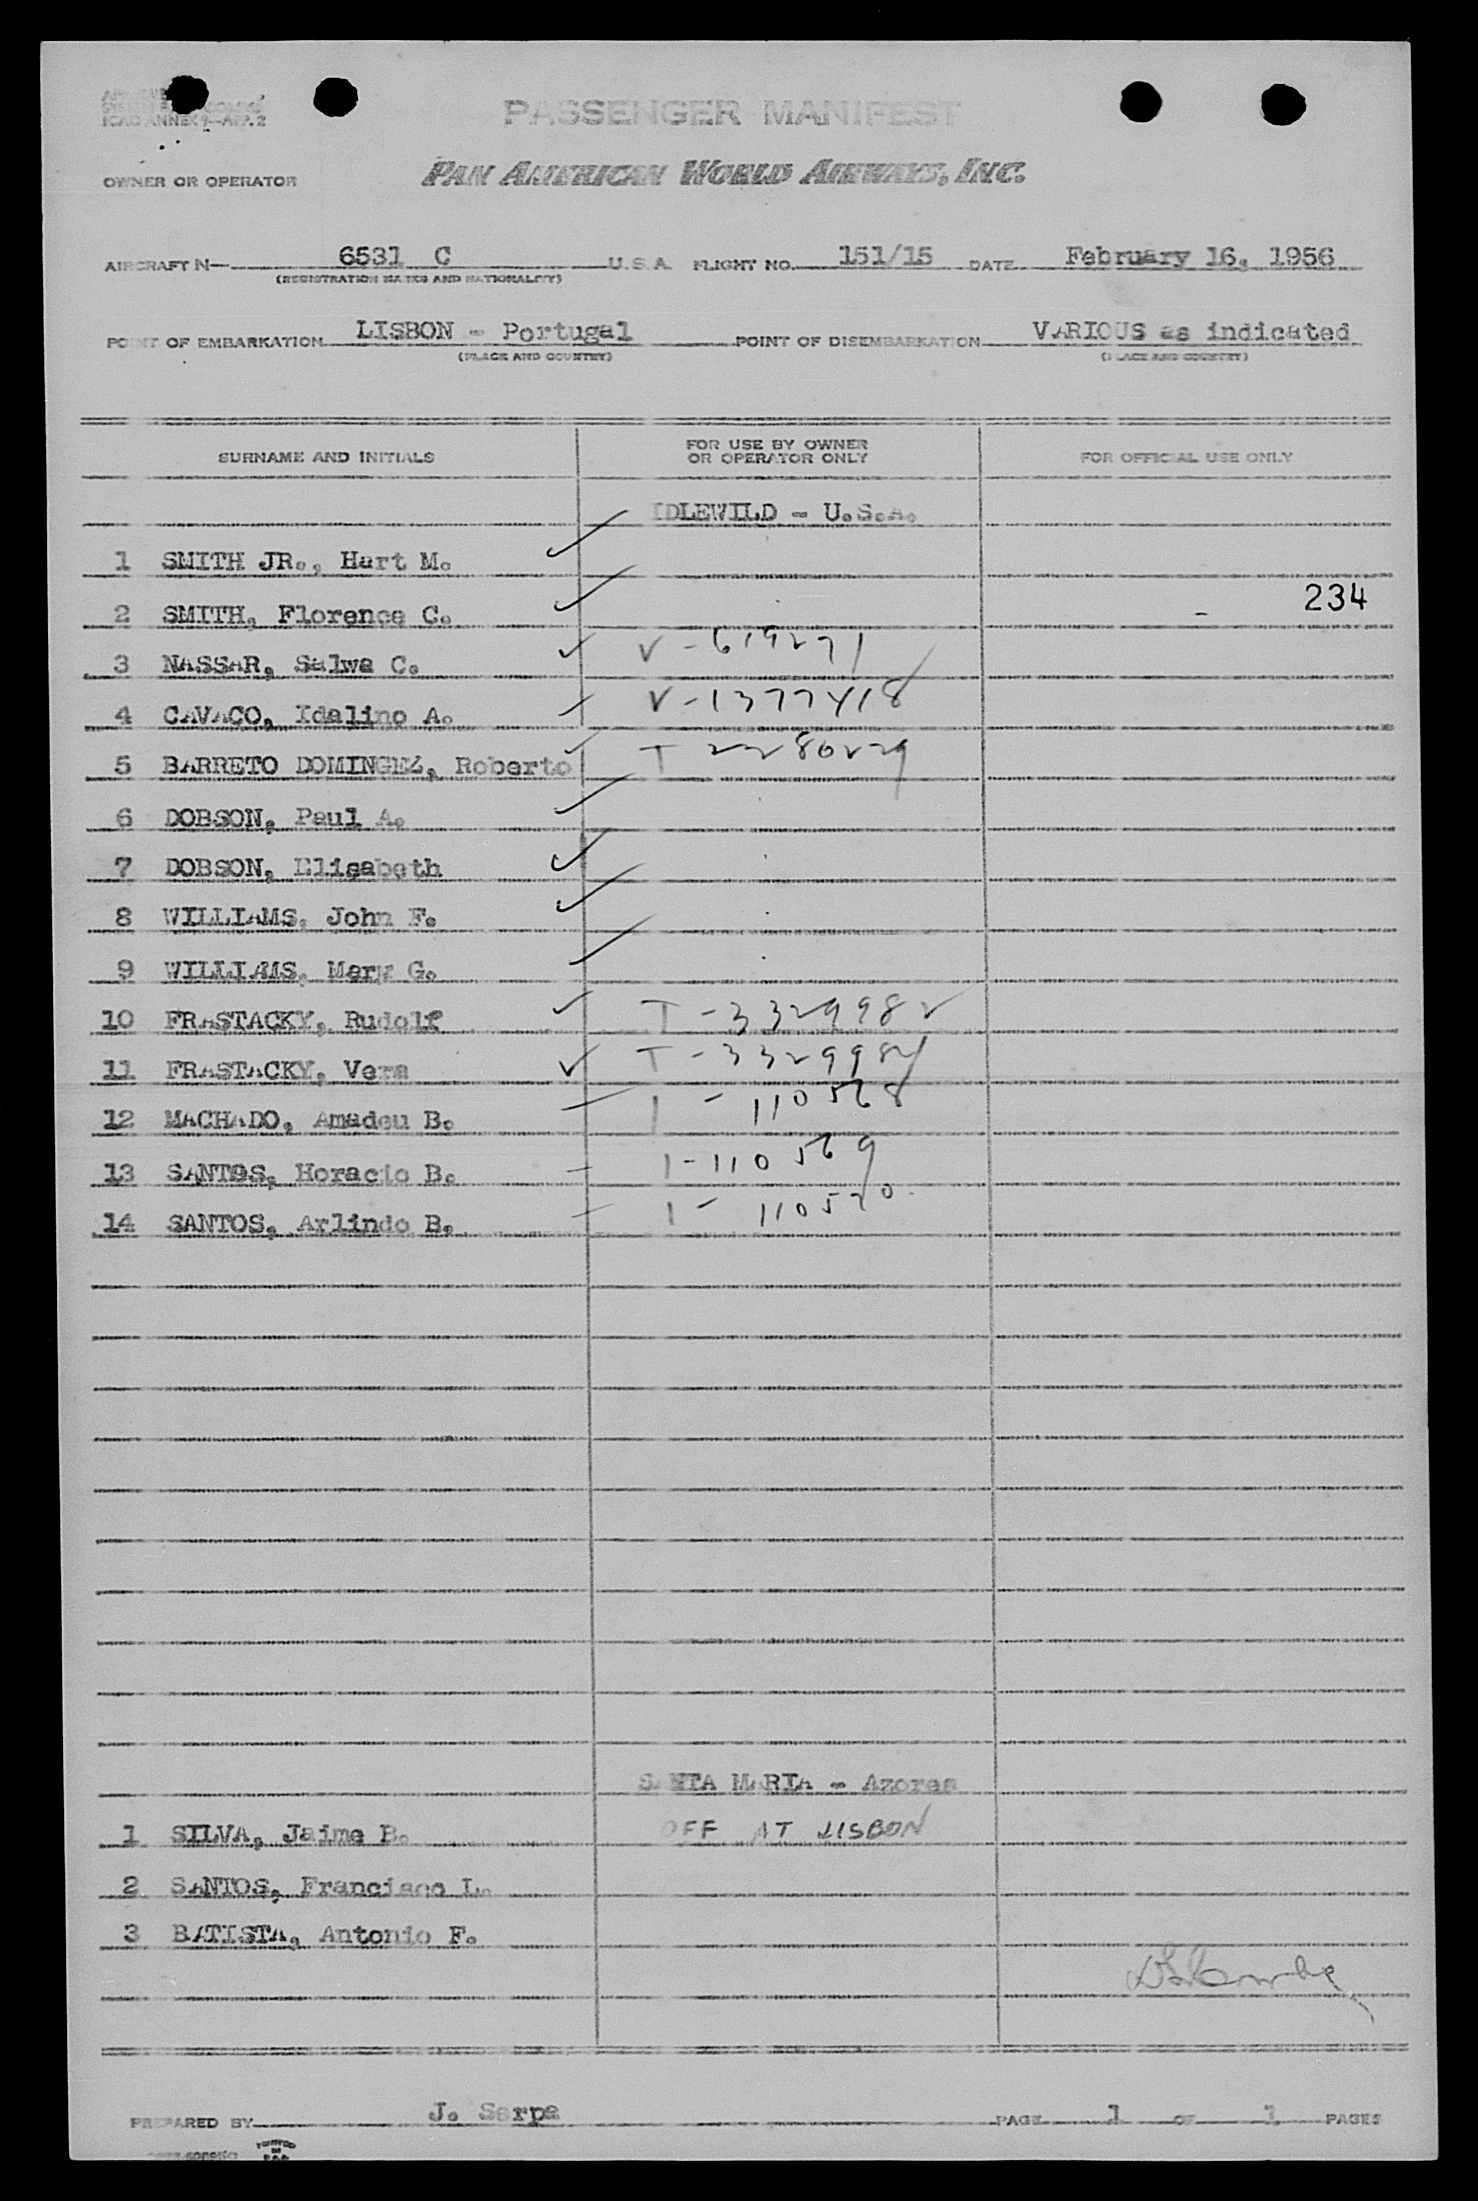 ICAO ANNEX 9—APP. 2
PASSENGER MANIFEST
OWNER OR OPERATOR PAN AMERICAN WORLD AIRWAYS, INC.
AIRCRAFT N— 6531 C U.S.A. FLIGHT NO. 151/15 DATE February 16, 1956
(REGISTRATION MARKS AND NATIONALITY)
POINT OF EMBARKATION LISBON - Portugal POINT OF DISEMBARKATION VARIOUS as indicated
(PLACE AND COUNTRY) (PLACE AND COUNTRY)
SURNAME AND INITIALS FOR USE BY OWNER OR OPERATOR ONLY FOR OFFICIAL USE ONLY
IDLEWILD - U.S.A.
1 SMITH JR., Hart M. ✓
2 SMITH, Florence C. ✓ - 234
3 NASSAR, Salwa C. ✓ V-619271
4 CAVACO, Idalino A. ✓ V-1377418
5 BARRETO DOMINGEZ, Roberto ✓ T 2280229
6 DOBSON, Paul A. ✓
7 DOBSON, Elisabeth ✓
8 WILLIAMS, John F. ✓
9 WILLIAMS, Mary G. ✓
10 FRASTACKY, Rudolf ✓ T-3329982
11 FRASTACKY, Vera ✓ T-3329984
12 MACHADO, Amadeu B. — 1-110568
13 SANTOS, Horacio B. — 1-110569
14 SANTOS, Arlindo B. — 1-110570
SANTA MARIA - Azores
1 SILVA, Jaime B. OFF AT LISBON
2 SANTOS, Francisco L.
3 BATISTA, Antonio F.
PREPARED BY J. Serpa PAGE 1 OF 1 PAGES